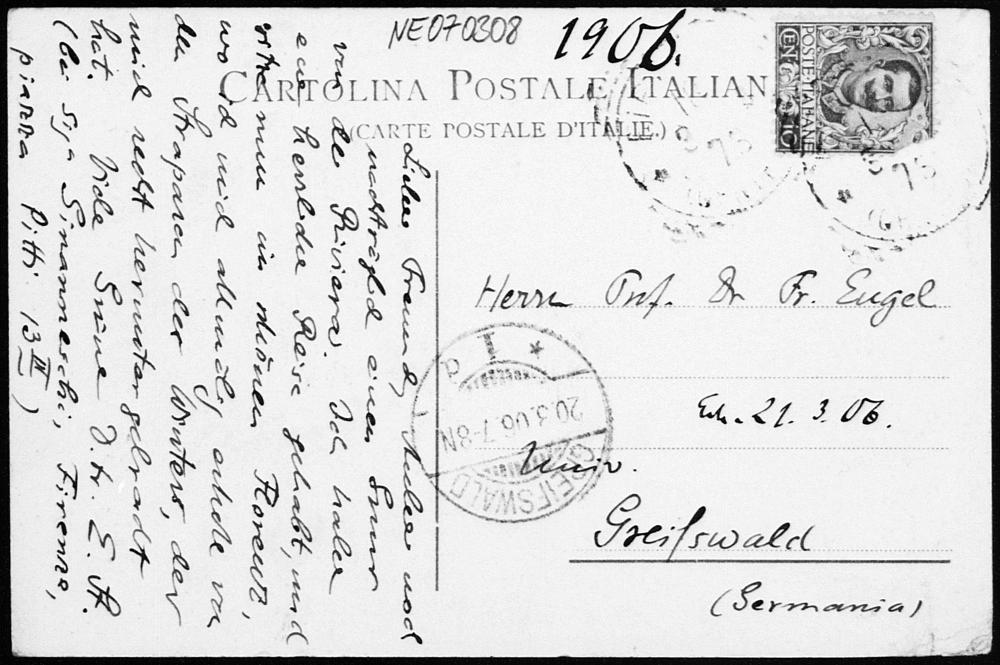 NE070308
1906.
CARTOLINA POSTALE ITALIANA
(CARTE POSTALE D'ITALIE.)
POSTE ITALIANE
CENT. 10
Herrn Prof. Dr Fr. Engel
Erh. 21. 3. 06.
Univ.
Greifswald
(Germania)
GREIFSWALD
20.3.06.7-8N
Lieber Freund, Anbei noch
nachträglich einen Gruss
von der Riviera. Ich habe
eine herrliche Reise gehabt, und
sitze nun im schönen Florenz,
wo ich mich allmälig erhole von
den Strapazen des Winters, der
mich recht heruntergebracht
hat. Viele Grüsse E. St.
(bei Siga Firenze,
piazza Pitti 13 III)